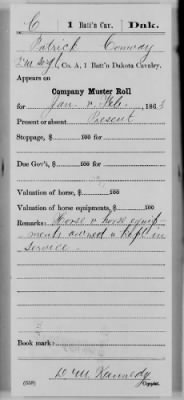 C 1 Batt'n Cav. Dak.
Patrick Conway
Co. A, 1 Batt'n Dakota Cavalry.
Appears on
Company Muster Roll
for Jan. & Feb., 1863
Present or absent Present
Stoppage, $ 100 for
Due Gov't, $ 100 for
Valuation of horse, $ 100
Valuation of horse equipments, $ 100
Remarks: Horse & horse equip
ments owned & kept in
service.
Book mark:
D M Kennedy
(358) Copyist.